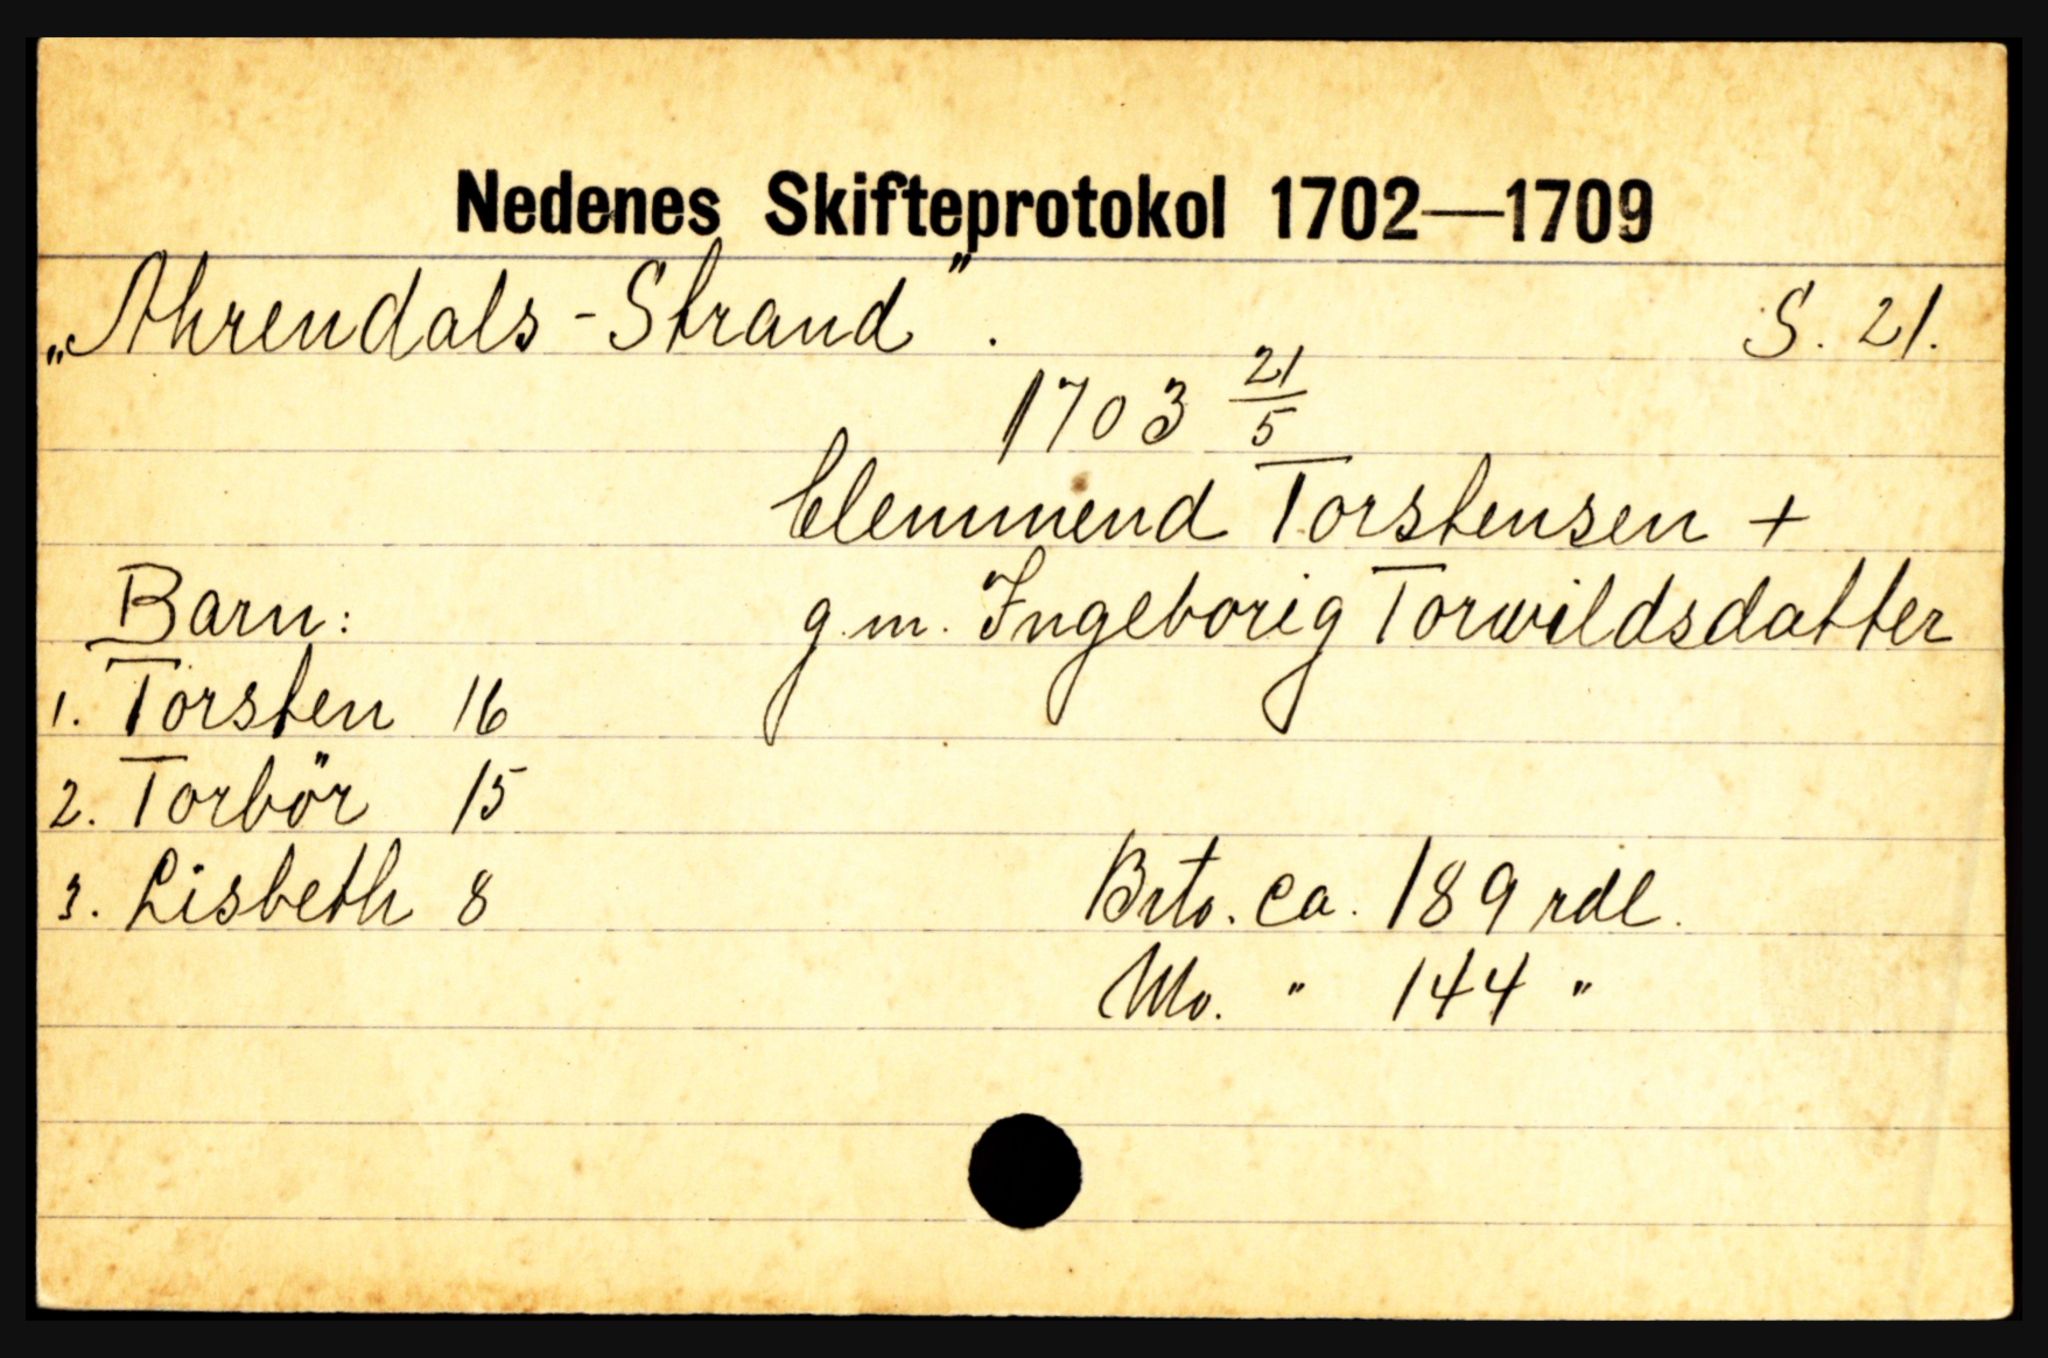 Nedenes Skifteprotokol 1702—1709
„Ahrendals-Strand". S. 21.
1703 21/5
Clemmend Torstensen +
Barn: g.m. Ingeborig Torwildsdatter
1. Torsten 16
2. Torbör 15
3. Lisbeth 8 Brto. ca. 189 rdl.
" 144 "